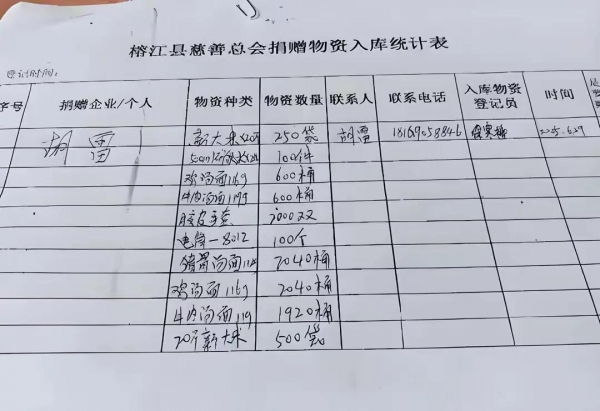 榕江县慈善总会捐赠物资入库统计表
登记时间：
序号 捐赠企业/个人 物资种类 物资数量 联系人 联系电话 入库物资登记员 时间 是
胡雷 新大米 250袋 胡雷 18169058846 2025.6.29
500ml 100件
鸡汤面116g 600桶
牛肉汤面119g 600桶
胶皮手套 2000双
电筒-8012 100个
猪骨汤面 2040桶
鸡汤面116g 2040桶
牛肉汤面119 1920桶
20斤新大米 500袋